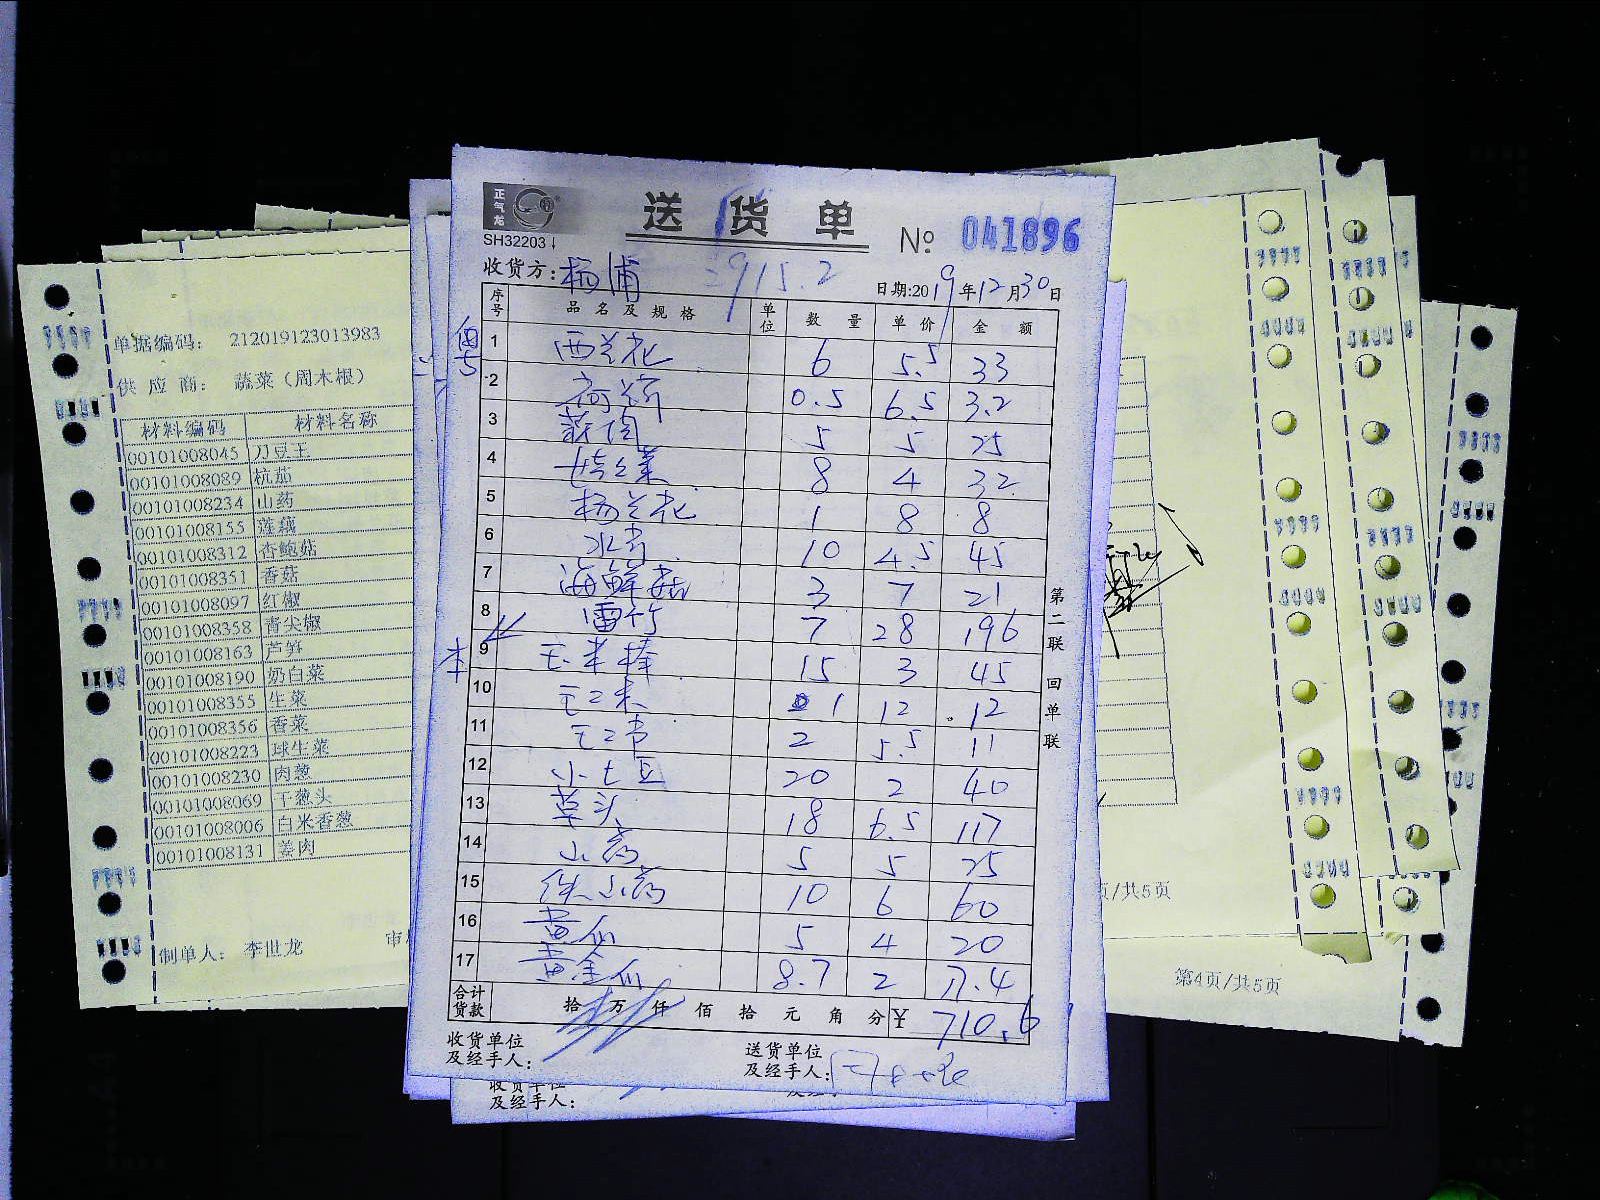 正气龙
送货单
SH32203
№ 041896
收货方: 杨浦 =915.2
日期:2019年12月30日
序号 品名及规格 单位 数量 单价 金额
1 西兰花 6 5.5 33
2 0.5 6.5 3.2
3 5 5 25
4 8 4 32
5 杨兰花 1 8 8
6 水芹 10 4.5 45
7 海鲜菇 3 7 21
8 雷竹 7 28 196
9 玉米棒 15 3 45
10 1 12 12
11 2 5.5 11
12 小土豆 20 2 40
13 草头 18 6.5 117
14 山药 5 5 25
15 铁山药 10 6 60
16 黄瓜 5 4 20
17 黄金瓜 8.7 2 17.4
合计货款 拾万仟佰拾元角分 ¥ 710.6
收货单位及经手人:
送货单位及经手人:
第二联 回单联
收货单位
及经手人:
单据编码: 212019123013983
供应商: 蔬菜（周木根）
材料编码 材料名称
00101008045 刀豆王
00101008089 杭茄
00101008234 山药
00101008155 莲藕
00101008312 杏鲍菇
00101008351 香菇
00101008097 红椒
00101008358 青尖椒
00101008163 芦笋
00101008190 奶白菜
00101008355 生菜
00101008356 香菜
00101008223 球生菜
00101008230 肉葱
00101008069 干葱头
00101008006 白米香葱
00101008131 姜肉
制单人: 李世龙
页/共5页
第4页/共5页